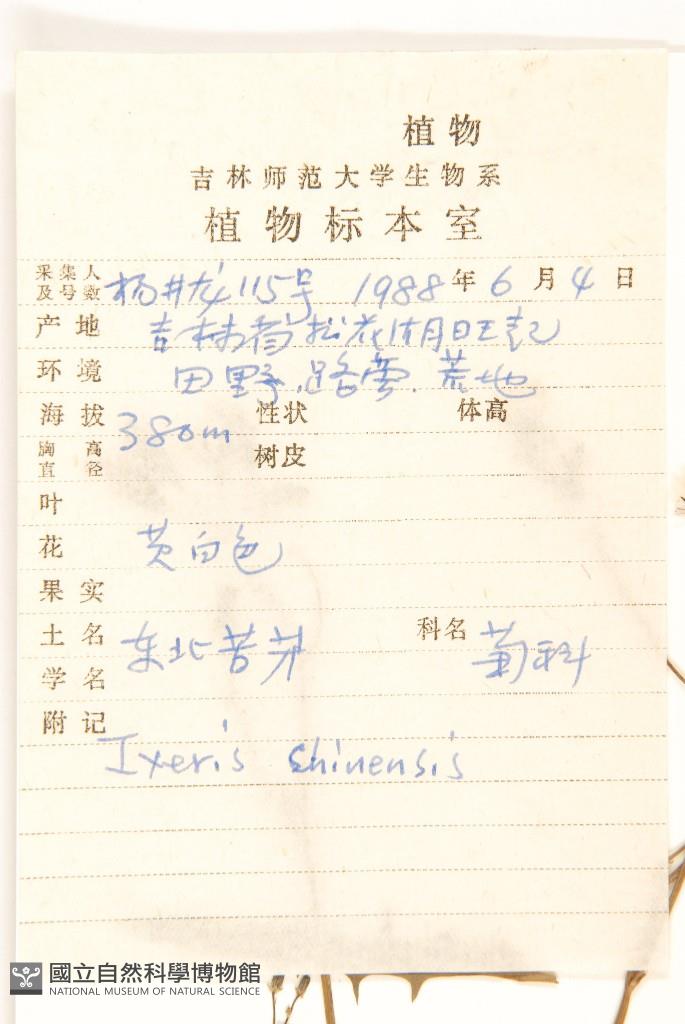 植物
吉林师范大学生物系
植物标本室
采集人及号数 杨井龙 115号 1988年6月4日
产地 吉林省松花湖旺起
环境 田野、路旁、荒地
海拔 380m 性状 体高
胸高直径 树皮
叶
花 黄白色
果实
土名 东北苦芽 科名 菊科
学名
附记
Ixeris chinensis
國立自然科學博物館
NATIONAL MUSEUM OF NATURAL SCIENCE